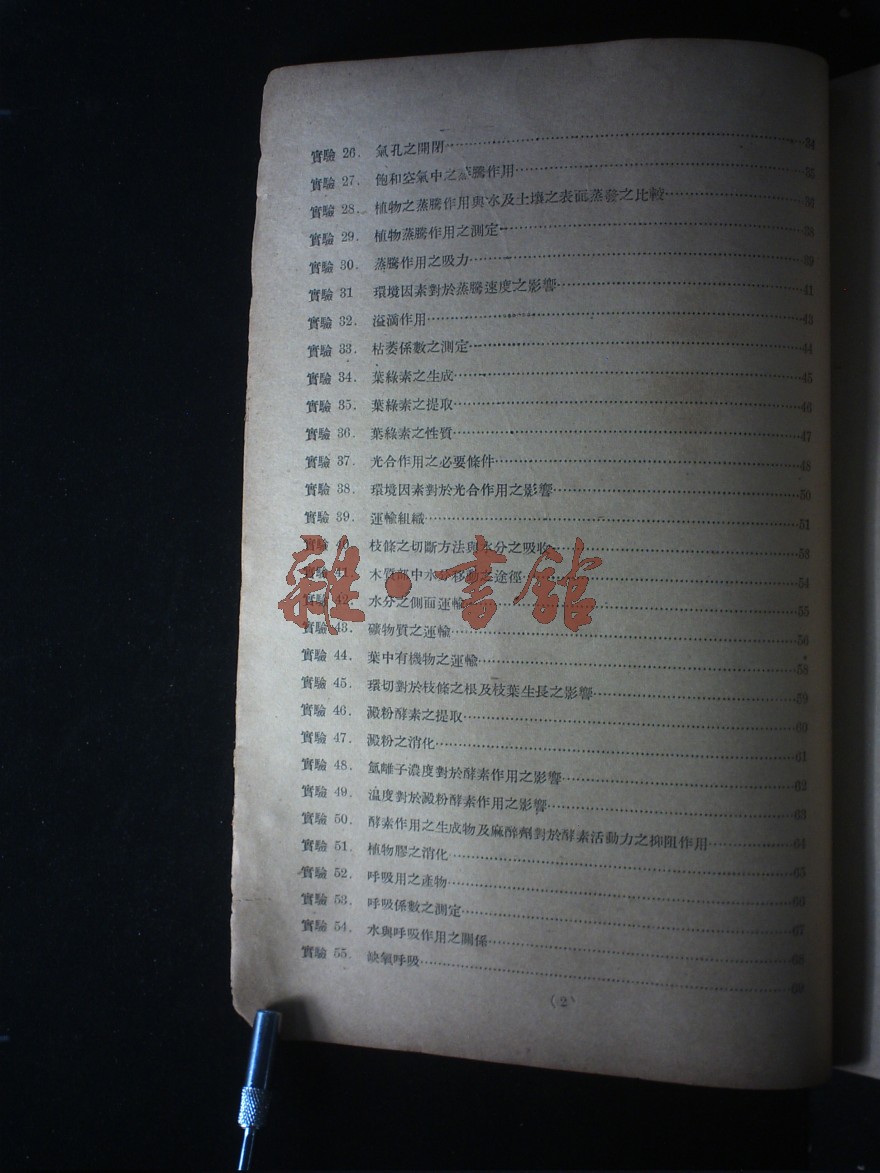 實驗 26. 氣孔之開閉……34
實驗 27. 飽和空氣中之蒸騰作用……35
實驗 28. 植物之蒸騰作用與水及土壤之表面蒸發之比較……36
實驗 29. 植物蒸騰作用之測定……38
實驗 30. 蒸騰作用之吸力……39
實驗 31 環境因素對於蒸騰速度之影響……41
實驗 32. 溢滴作用……43
實驗 33. 枯萎係數之測定……44
實驗 34. 葉綠素之生成……45
實驗 35. 葉綠素之提取……46
實驗 36. 葉綠素之性質……47
實驗 37. 光合作用之必要條件……48
實驗 38. 環境因素對於光合作用之影響……50
實驗 39. 運輸組織……51
實驗 40. 枝條之切斷方法與水分之吸收……53
實驗 41. 木質部中水分移動之途徑……54
實驗 42. 水分之側面運輸……55
雜·書館
實驗 43. 礦物質之運輸……56
實驗 44. 葉中有機物之運輸……58
實驗 45. 環切對於枝條之根及枝葉生長之影響……59
實驗 46. 澱粉酵素之提取……60
實驗 47. 澱粉之消化……61
實驗 48. 氫離子濃度對於酵素作用之影響……62
實驗 49. 温度對於澱粉酵素作用之影響……63
實驗 50. 酵素作用之生成物及麻醉劑對於酵素活動力之抑阻作用……64
實驗 51. 植物膠之消化……65
實驗 52. 呼吸用之產物……66
實驗 53. 呼吸係數之測定……67
實驗 54. 水與呼吸作用之關係……68
實驗 55. 缺氧呼吸……69
(2)